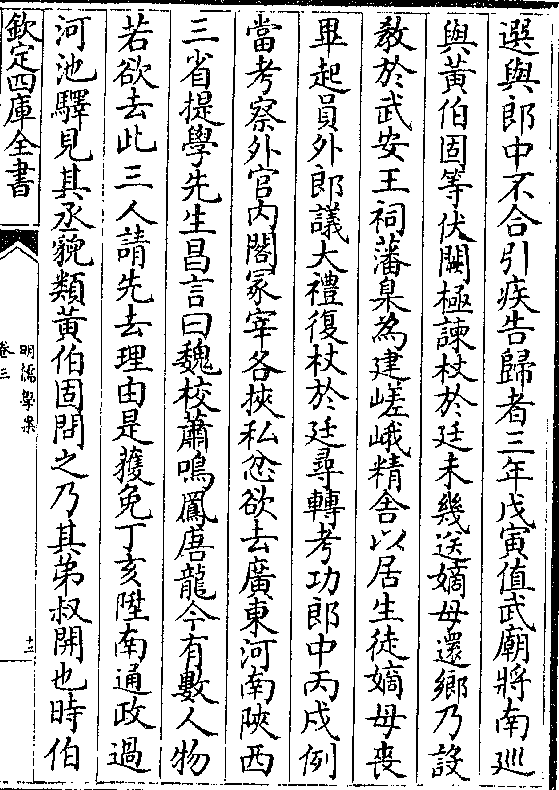 選與郎中不合引疾告歸者三年戊寅值武廟將南巡
與黃伯固等伏闕極諫杖於廷未幾送嫡母還鄉乃設
教於武安王祠藩臬為建嵯峨精舍以居生徒嫡母喪
畢起員外郎議大禮復杖於廷尋轉考功郎中丙戌例
當考察外官內閣冢宰各挾私忿欲去廣東河南陝西
三省提學先生昌言曰魏校蕭鳴鳳唐龍今有數人物
若欲去此三人請先去理由是獲免丁亥陞南通政過
河池驛見其丞貌類黃伯固問之乃其弟叔開也時伯
欽定四庫全書
明儒學案
卷三
十三